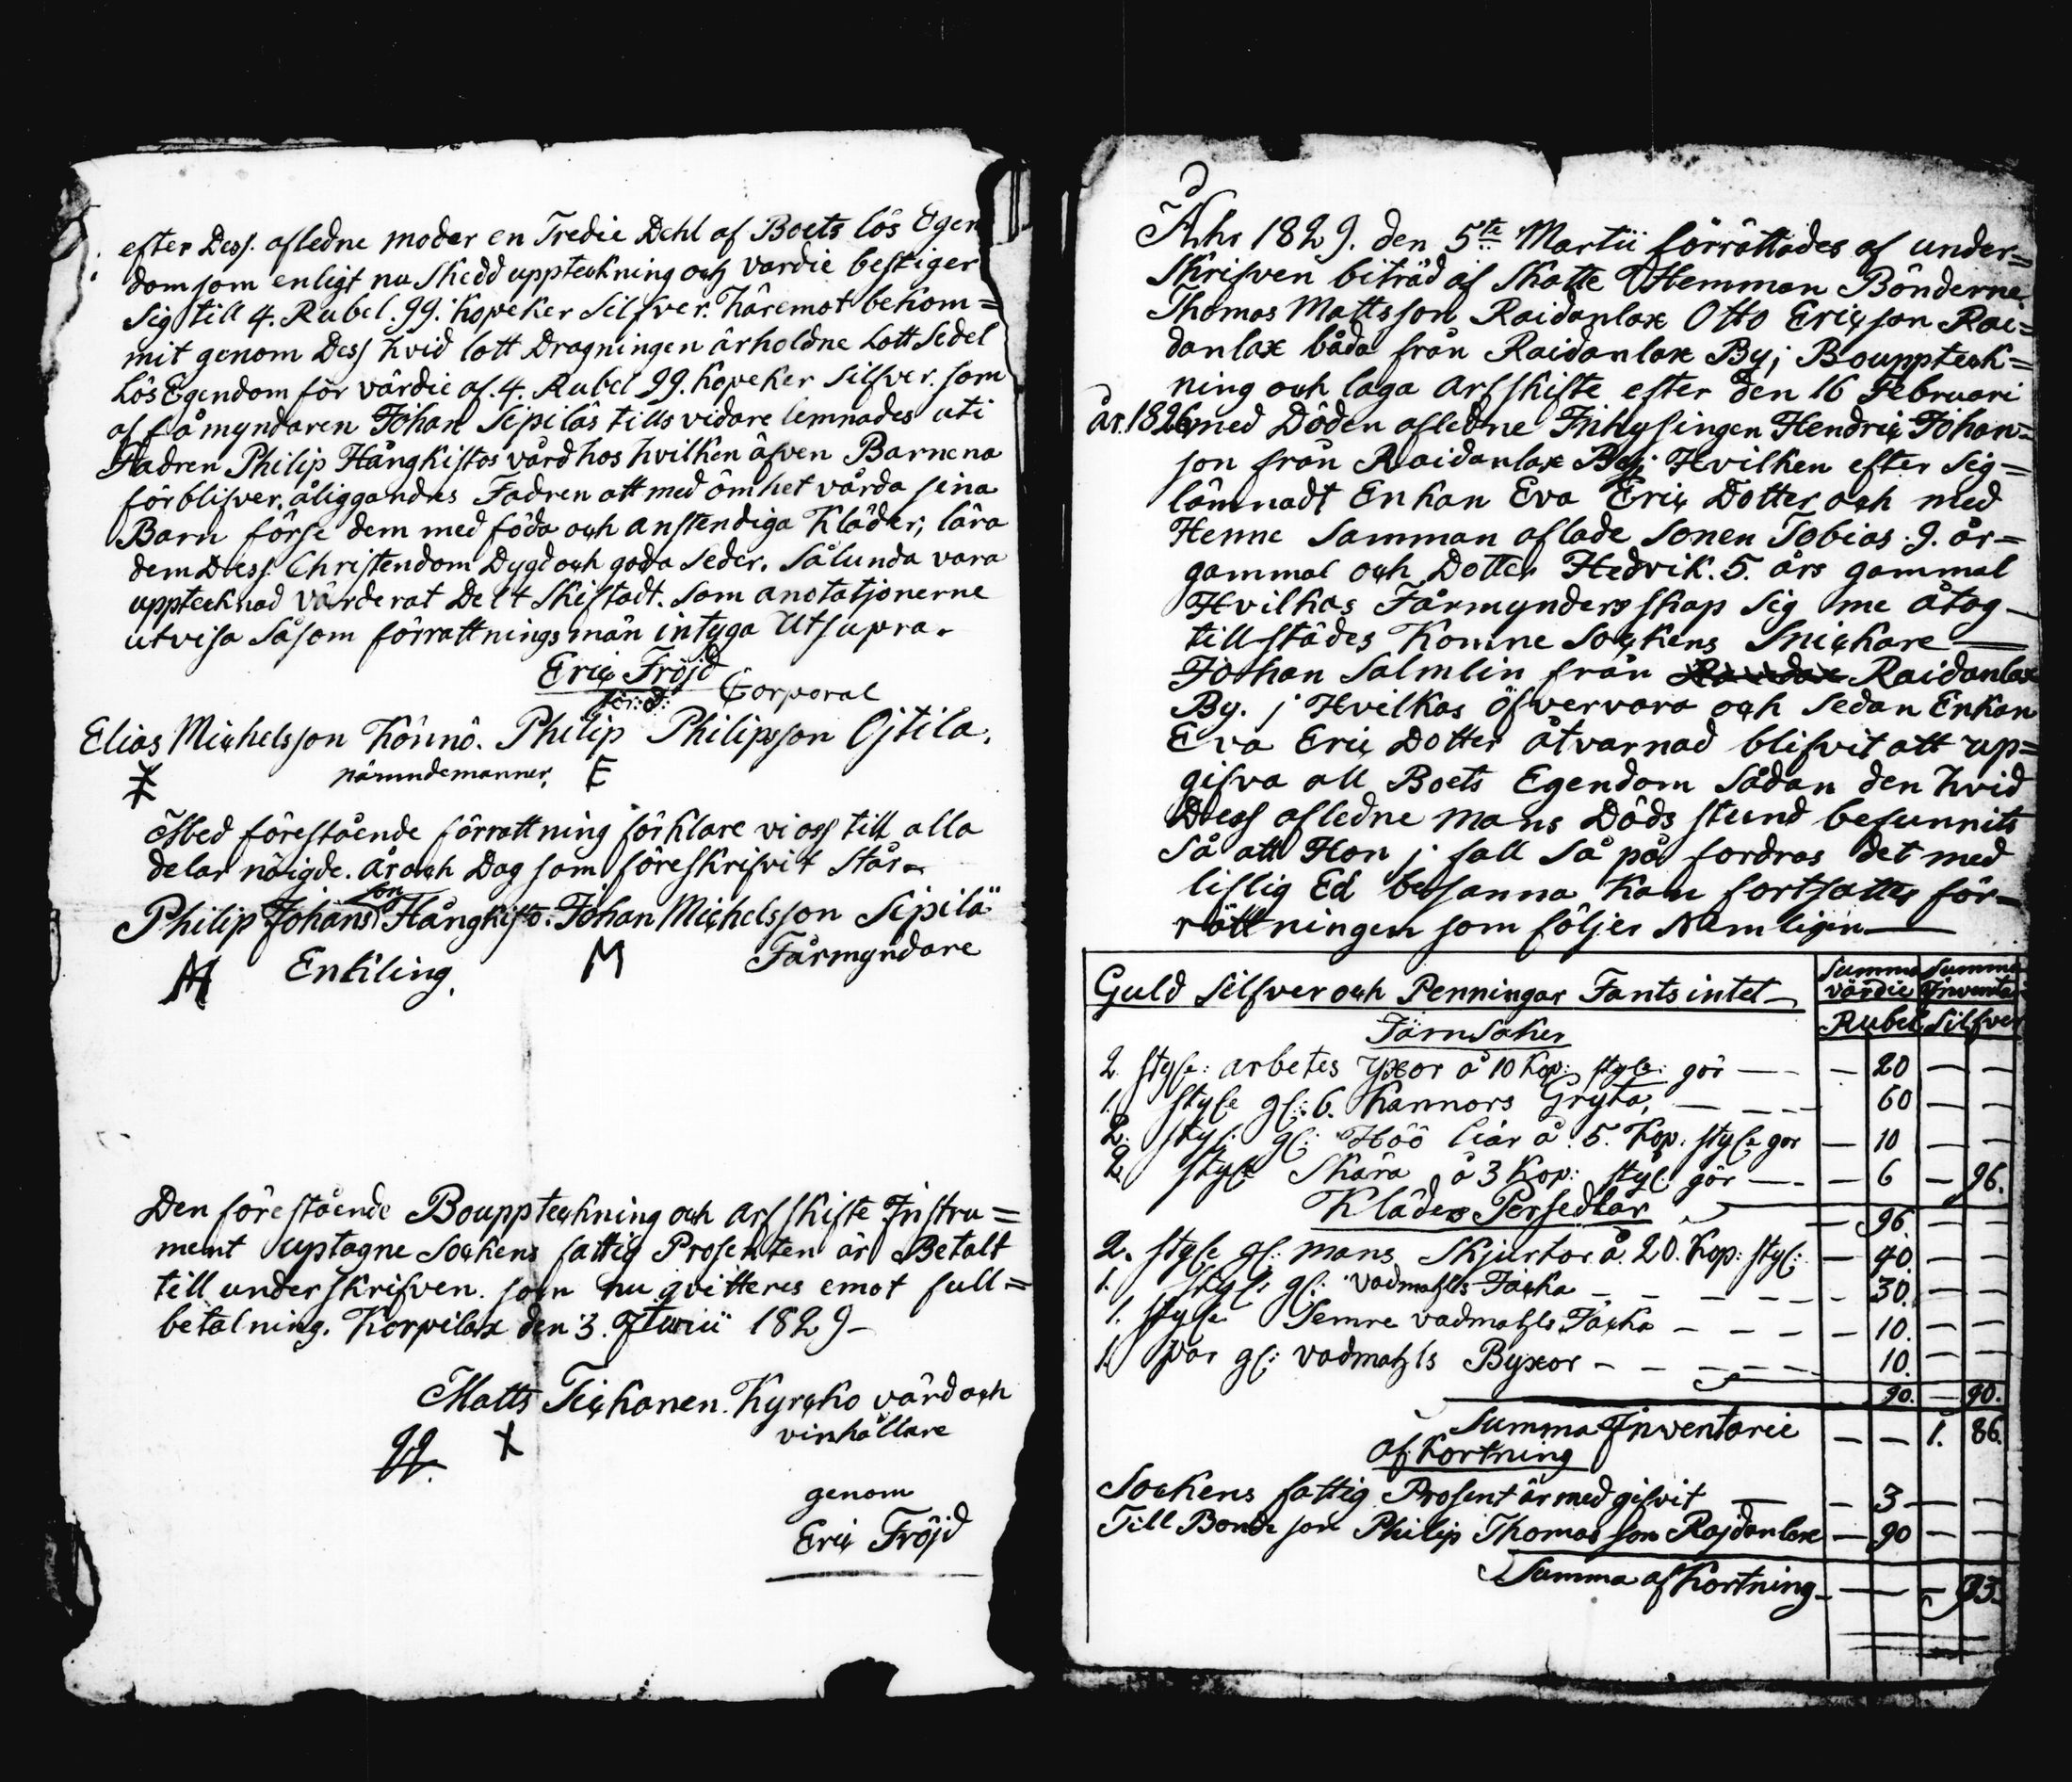 efter Dess. afledne moder en Tredie Dehl af Boets lös Egen
dom som enligt nu Skedd uppteckning och vardie bestiger
sig till 4. Rubel. 99. Kopeker Silfver. Häremot bekom=
mit genom Dess hvid lott Dragningen ärholdne Lott Sedel
Lös Egendom för värdie af. 4. Rubel 99. Kopeker Silfver. som
af fåmyndaren Johan Sipiläs tills vidare lemnades uti
Fadren Philip Hångkistos vård hos hvilken äfven Barnena
förblifver. åliggandes Fadren att med ömhet vårda sina
Barn förse dem med föda och anstendiga Kläder; lära
dem Dess. Christendom Dygd och goda Seder. Sålunda vara
upptecknad värderat Delt Skiftadt. Som anotatjonerne
utvisa Såsom förrattnings män intyga Utsupra.
Eric Fröjd
Corporal
Elias Michelsson Könnö. Philip Philipsson Ojtila.
nämndemänner. E
Med förestående förrattning förklare vi oss till alla
delar nöigde. År och Dag som föreskrifvit Står
son
Philip Johans Hångkisto. Johan Michelsson Sipilä
Enkling. M Fårmyndare
Den förestående Bouppteckning och Arfskifte Instru=
ment uptagne Sockens fattig Prosenten är Betalt
till underskrifven. som nu qvitteres emot full=
betalning. Korpilax den 3. Junii 1829
Matts Tickanen. Kyrcko värd och
X vinhållare
genom
Eric Fröjd
Åhr 1829. den 5te Martii förrättades af under=
Skrifven biträd af Skatte Hemman Bönderne
Thomas Mattsson Raidanlax Otto Ericson Rai=
danlax båda från Raidanlax By; Bouppteck=
ning och laga Arfskifte efter den 16 Februari
år. 1826 med Döden afledne Inhysingen Hendric Johan=
son från Raidanlax By; Hvilken efter Sig=
lämnadt Enkan Eva Eric Dotter och med
Henne Samman aflade Sonen Tobias. 9. år=
gammal och Dotter Hedvik. 5. års gammal
Hvilkas Fårmynders skap Sig me åtog
till städes Komne Sockens Snickare
Johan Salmlin från Raidanlax
By. j Hvilkas öfvervara och Sedan Enkan
Eva Eric Dotter åtvarnad blifvit att up=
gifva all Boets Egendom Sådan den hvid
Dess afledne Mans Döds stund befunnits
Så att Hon j fall Så på fordras det med
liflig Ed besanna Kan fortsattes för=
rättningen som följer Nämligin
Guld Silfver och Penningar Fants intet Summa värdie Summa Inventa
Rubel Silfver
Järn Saker
2. styk: arbetes Yxor å 10 Kop: styk: gör — 20 — —
1. styk gl: 6. Kannors Gryta, 60 — —
2. styk: gl: Höö liar å 5. Kop. styk gör — 10 — —
2. styk: Skära å 3 Kop: styk: gör — 6 — 96.
Kläders Persedlar — 96 — —
2. styk gl: mans Skjurtor å. 20. Kop: styk: — 40. — —
1. styk gl: vadmahls Jacka 30. — —
1. styk Semre vadmahls Jacka — 10. — —
1. par gl: vadmahls Byxor 10. — —
90. — 90.
Summa Inventarie — — 1. 86.
Afkortning
Sockens fattig Prosent är med gifvit — 3 — —
Till Bonde son Philip Thomas son Rajdanlax — 90 — —
Summa afkortning — — 93.